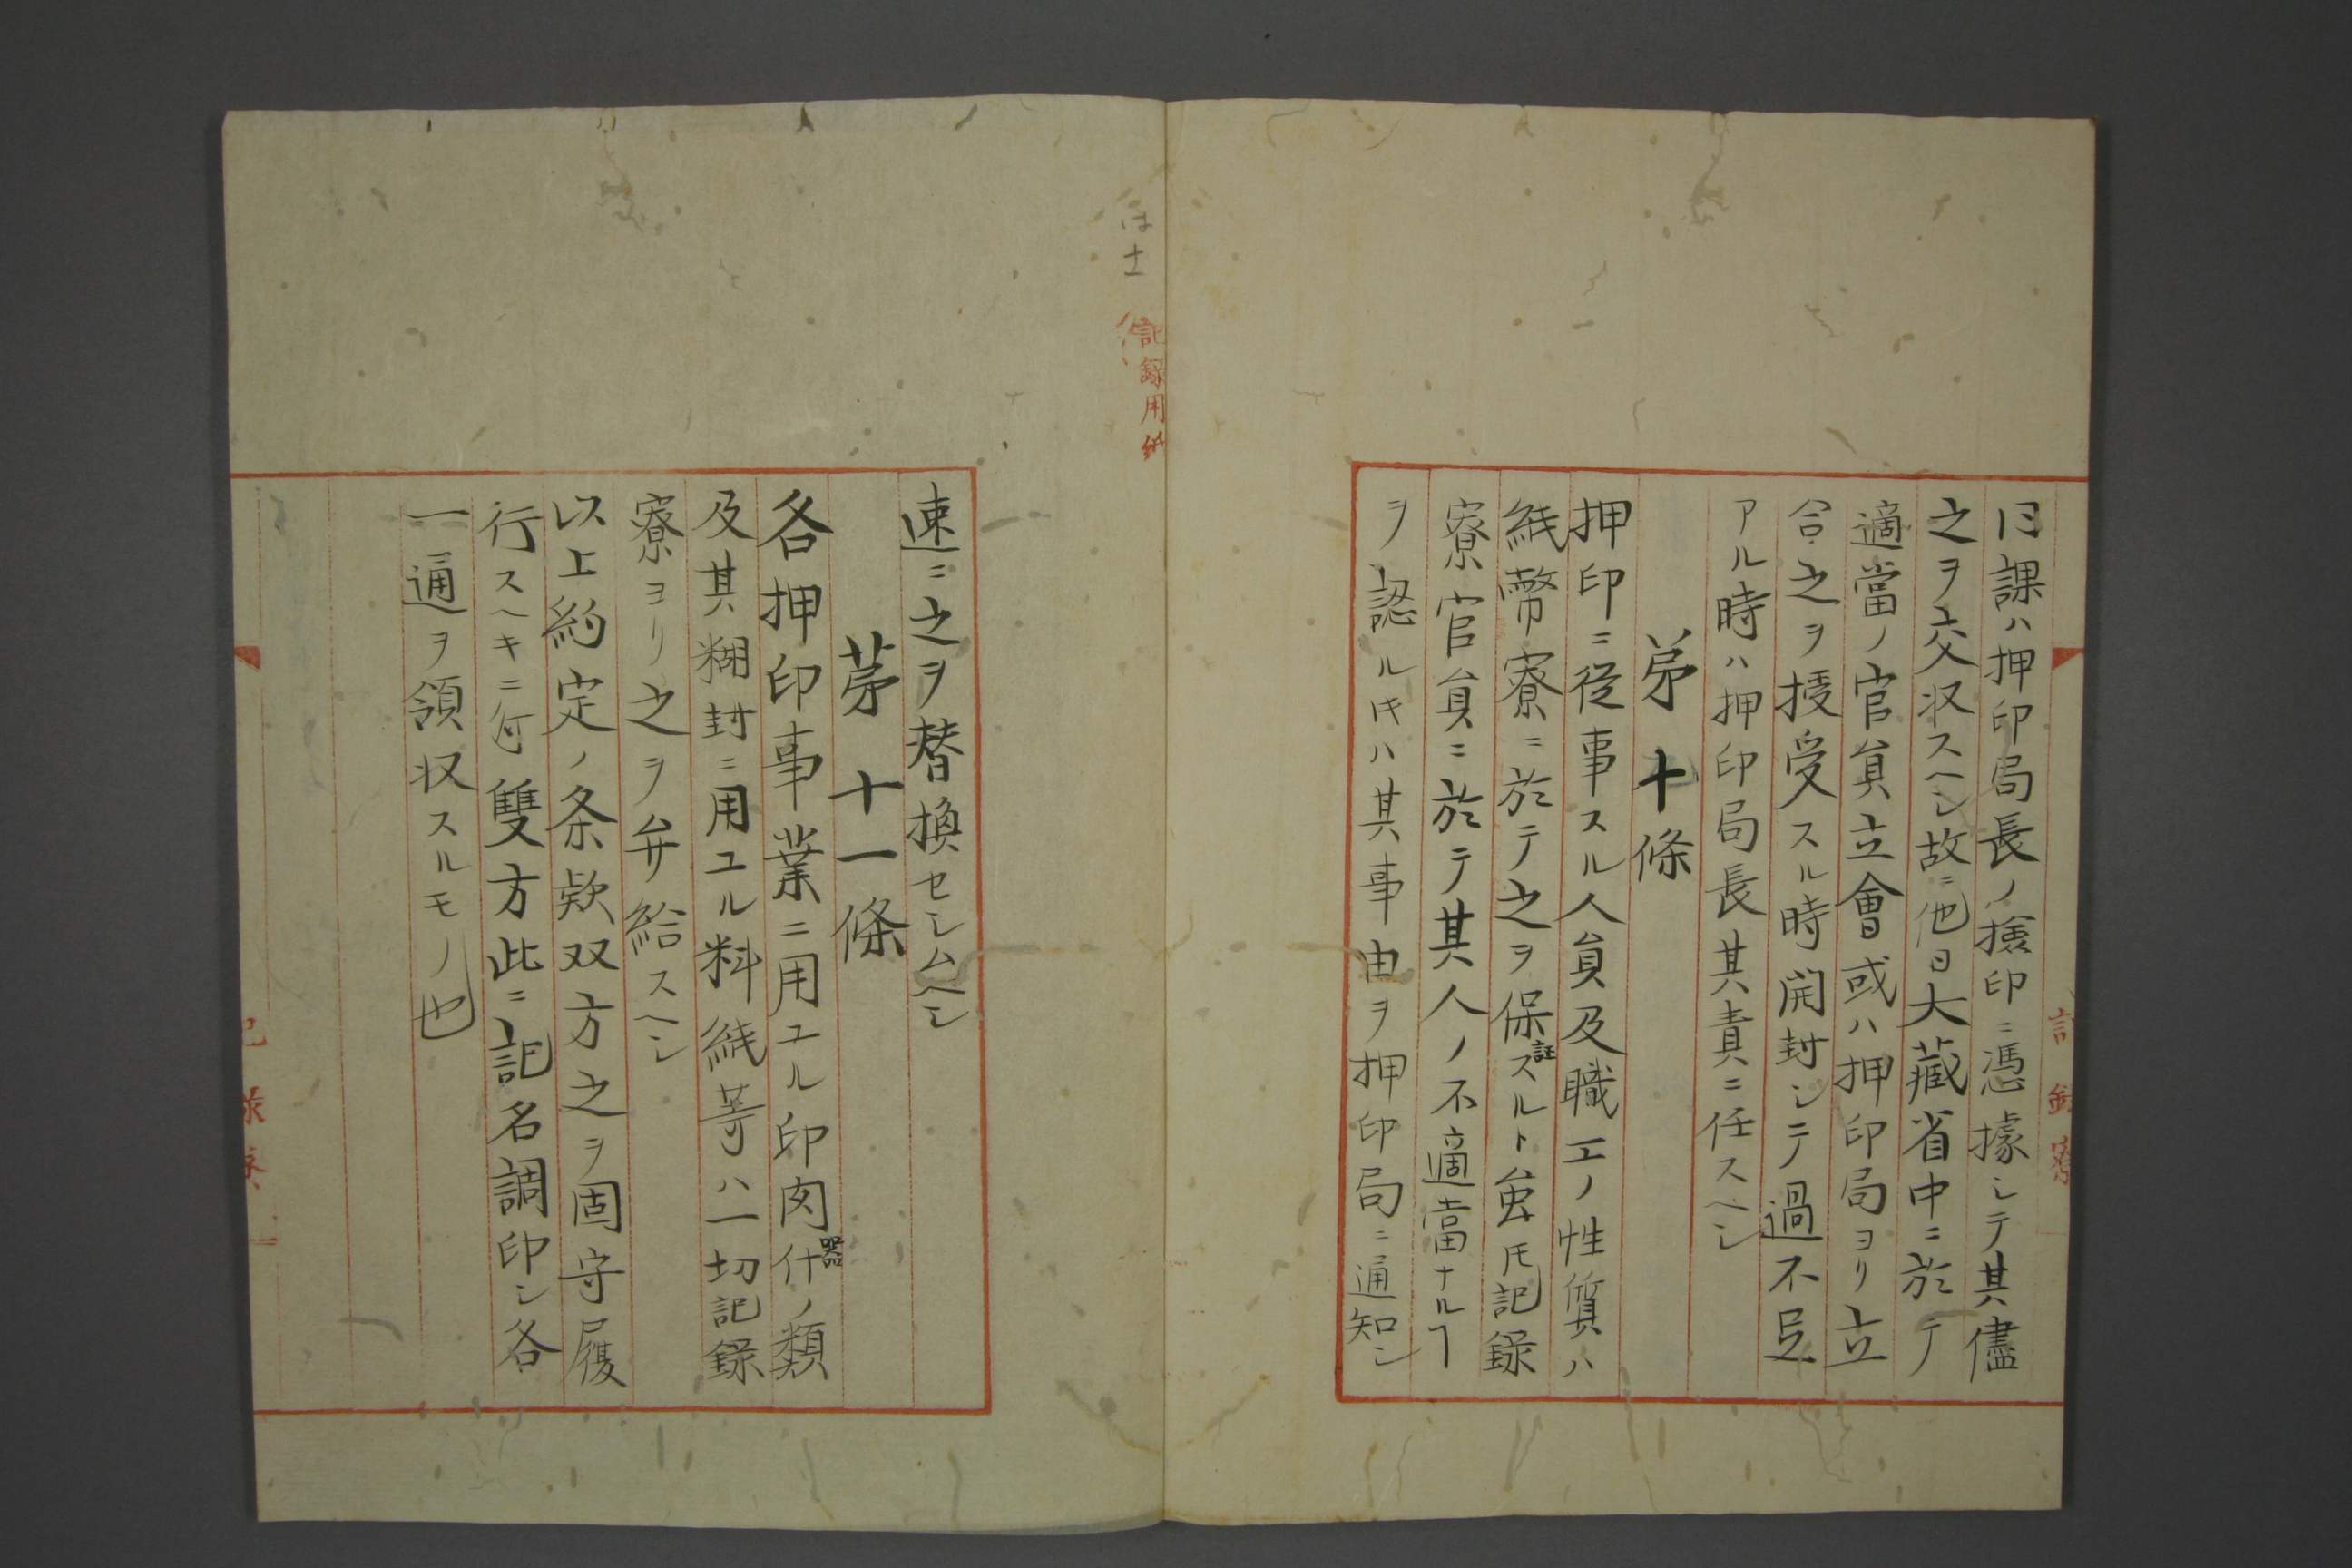 同課ハ押印局長ノ撿印ニ憑據シテ其儘
之ヲ交収スヘシ故ニ他日大藏省中ニ於テ
適當ノ官員立會或ハ押印局ヨリ立
合之ヲ授受スル時開封シテ過不足
アル時ハ押印局長其責ニ任スヘシ
第十條
押印ニ従事スル人員及職工ノ性質ハ
紙幣寮ニ於テ之ヲ保証スルト虽𪜈記録
寮官員ニ於テ其人ノ不適當ナルヿ
ヲ認ルキハ其事由ヲ押印局ニ通知シ
記録寮
記録用紙
速ニ之ヲ替換セシムヘシ
第十一條
各押印事業ニ用ユル印肉什器ノ類
及其糊封ニ用ユル料紙等ハ一切記録
寮ヨリ之ヲ弁給スヘシ
以上約定ノ条款双方之ヲ固守履
行スヘキニ付雙方此ニ記名調印シ各
一通ヲ領収スルモノ也
記録寮